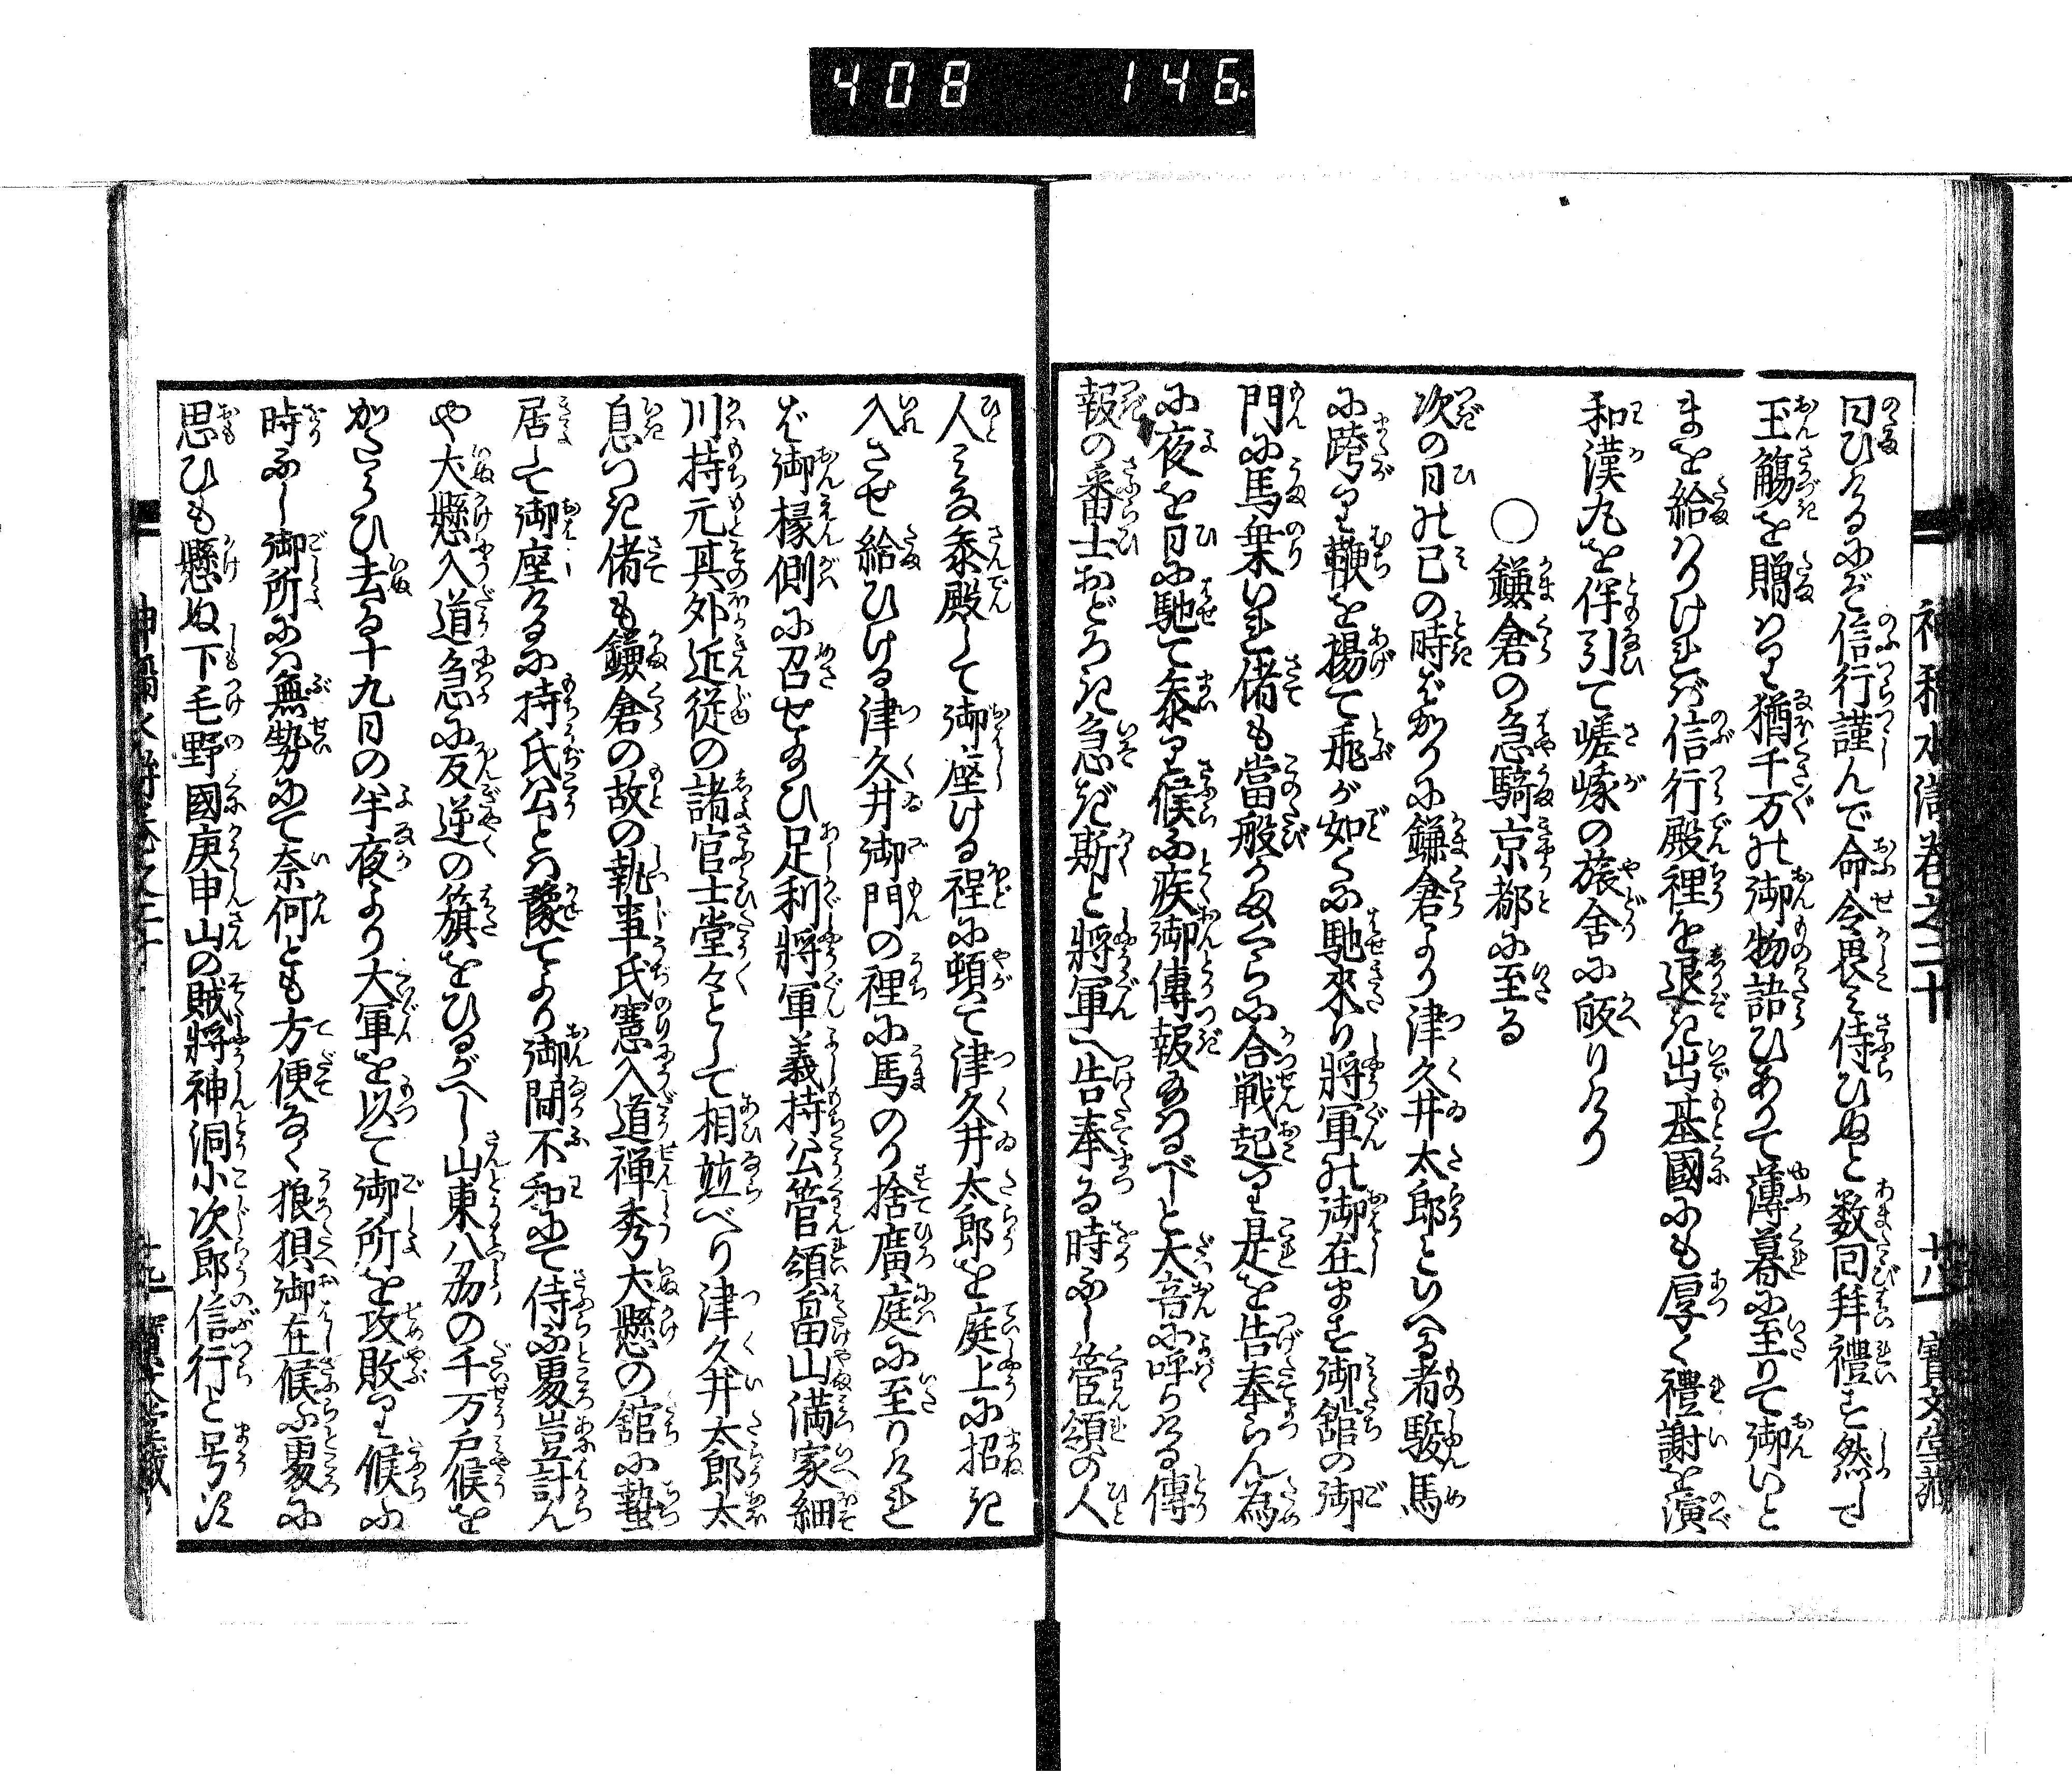 408 146.
曰ひけるにぞ信行謹んで命令畏み侍ひぬと数回拜禮す然して
玉觴を贈はり猶千万の御物語ひありて薄暮に至りて御いと
まを給はりけれバ信行殿裡を退き出基國にも厚く禮謝を演
和漢丸を伴引て嵯峨の旅舎に皈りけり
○鎌倉の急騎京都に至る
次の日の已の時ばかりに鎌倉より津久井太郎といへる者駿馬
に跨り鞭を揚て飛が如くに馳來り將軍の御在ます御舘の御
門に馬乗いれ偖も當般かまくらに合戦起り是を告奉らん為
に夜を日に馳て泰り候ふ疾御傳報あるべしと大音に呼りける傳
報の番士おどろき急ぎ斯と將軍へ告奉る時ふし管領の人
神稲水滸巻之二十 廿八 寳文堂蔵
人みな泰殿して御座ける程に頓て津久井太郎を庭上に招き
入させ給ひける津久井御門の裡に馬のり捨廣庭に至りけれ
ば御椽側に召せ給ひ足利將軍義持公管領畠山満家細
川持元其外近従の諸官士堂々として相並べり津久井太郎太
息つき偖も鎌倉の故の執事氏憲入道禅秀犬懸の舘に蟄
居して御座けるに持氏公とハ豫てより御間不和にて侍ふ処豈計ん
や犬懸入道急に反逆の籏をひるがへし山東八刕の千万戸候を
かたらひ去る十九日の半夜より大軍を以て御所を攻敗り候ふ
時ふし御所にハ無勢にて奈何とも方便なく狼狽御在候ふ処に
思ひも懸ぬ下毛野國庚申山の賊將神洞小次郎信行と号す